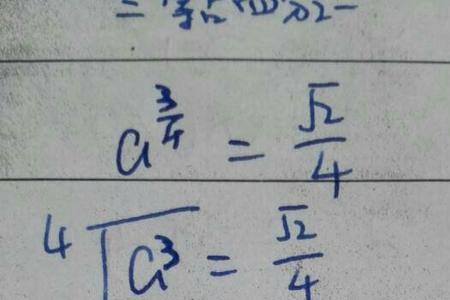 a^{\frac{3}{4}} = \frac{\sqrt{2}}{4}
\sqrt[4]{a^3} = \frac{\sqrt{2}}{4}